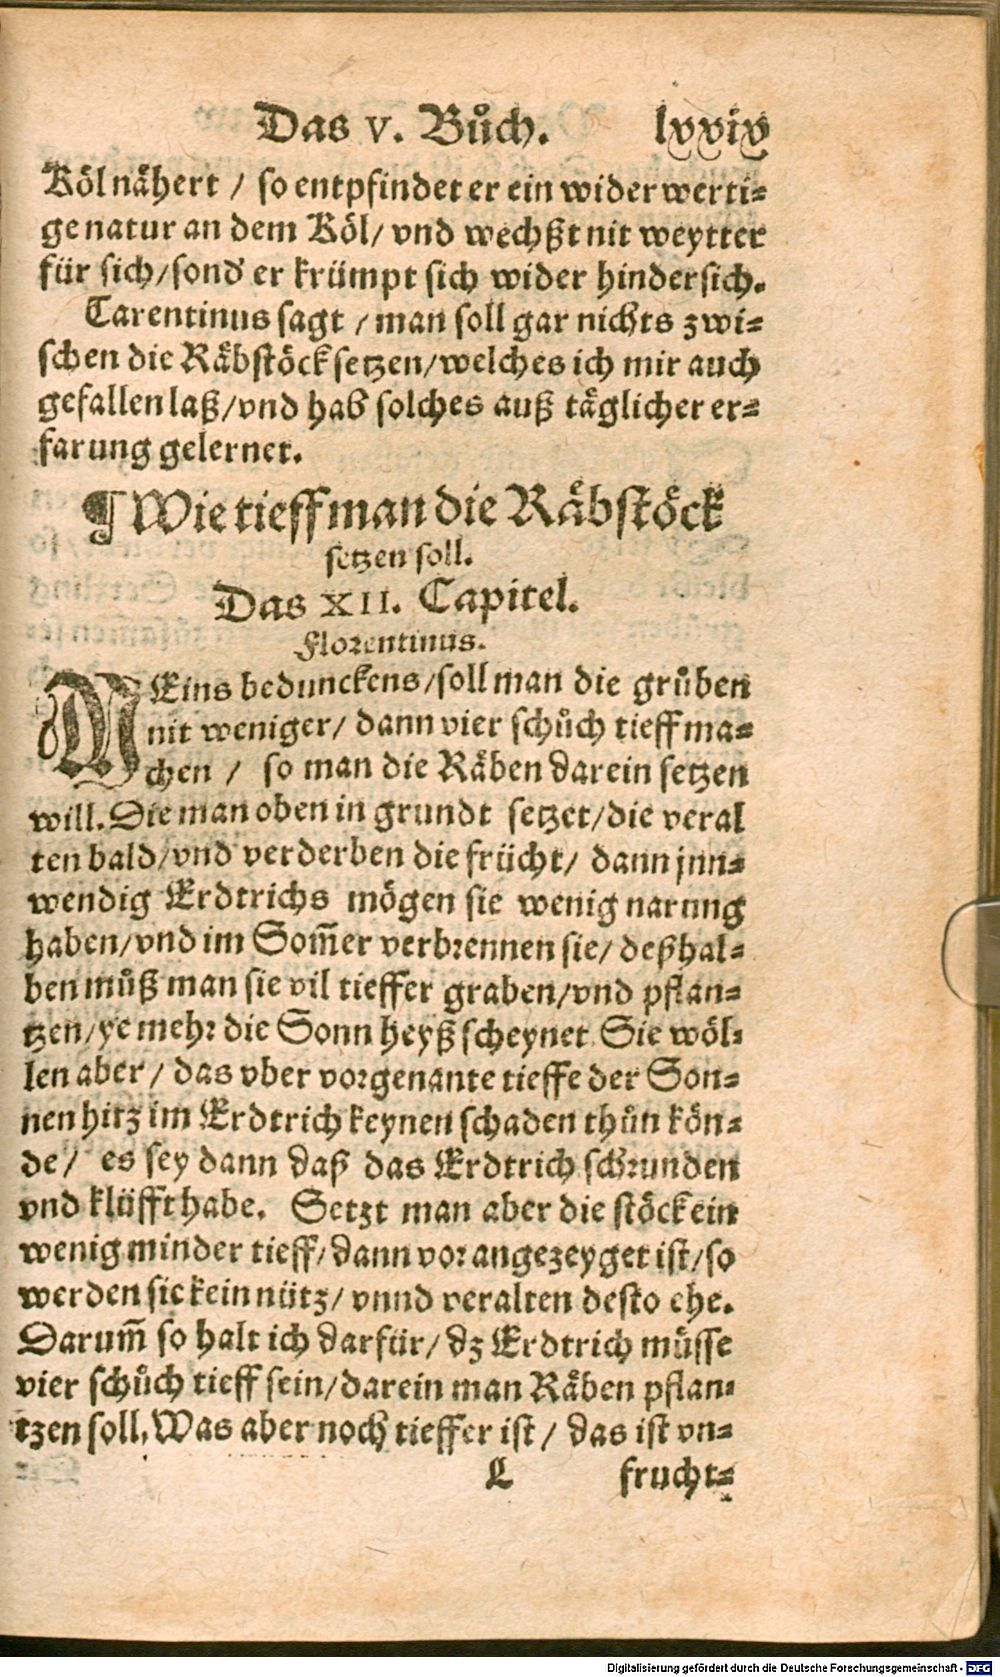 Das v. Bůch. lxxix
Köl nähert / so entpfindet er ein widerwerti⸗
ge natur an dem Köl / vnd wechßt nit weytter
für sich / sond̕ er krümpt sich wider hindersich.
Tarentinus sagt / man soll gar nichts zwi⸗
schen die Räbstöck setzen / welches ich mir auch
gefallen laß / vnd hab solches auß täglicher er⸗
farung gelernet.
¶ Wie tieff man die Räbstöck
setzen soll.
Das XII. Capitel.
Florentinus.
MEins bedunckens / soll man die grůben
nit weniger / dann vier schůch tieff ma⸗
chen / so man die Räben darein setzen
will. Die man oben in grundt setzet / die veral
ten bald / vnd verderben die frücht / dann jnn⸗
wendig Erdtrichs mögen sie wenig narung
haben / vnd im Som̃er verbrennen sie / deßhal⸗
ben můß man sie vil tieffer graben / vnd pflan⸗
tzen / ye mehr die Sonn heyß scheynet. Sie wöl⸗
len aber / das vber vorgenante tieffe der Son⸗
nen hitz im Erdtrich keynen schaden thůn kön⸗
de / es sey dann daß das Erdtrich schrunden
vnd klüfft habe. Setzt man aber die stöck ein
wenig minder tieff / dann vor angezeyget ist / so
werden sie kein nütz / vnnd veralten desto ehe.
Darum̃ so halt ich darfür / dz Erdtrich müsse
vier schůch tieff sein / darein man Räben pflan⸗
tzen soll. Was aber noch tieffer ist / das ist vn⸗
L frucht⸗
Digitalisierung gefördert durch die Deutsche Forschungsgemeinschaft - DFG